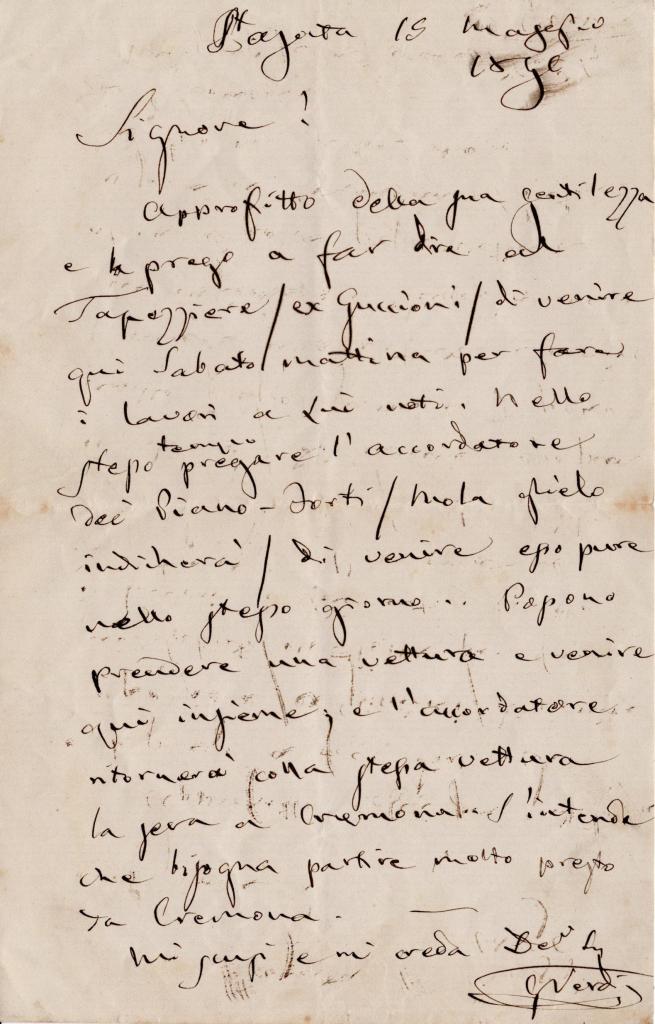 St Agata 15 Maggio
18
Signore!
Approfitto della sua gentilezza
e la prego a far dire al
Tapezziere / ex Guccioni / di venire
qui Sabato mattina per fare
i lavori a Lui noti. Nello
stesso tempo pregare l'accordatore
dei Piano-Forti / Mola glielo
indicherà / di venire esso pure
nello stesso giorno.. Possono
prendere una vettura e venire
qui insieme; e l'accordatore
ritornerà colla stessa vettura
la sera a Cremona. S'intende
che bisogna partire molto presto
da Cremona.
Mi scusi e mi creda
GVerdi